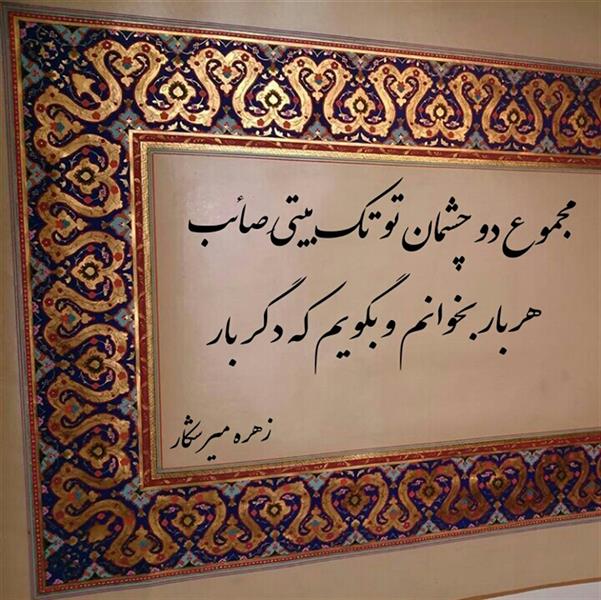 مجموع دو چشمان تو تک بیتی صائب
هر بار بخوانم و بگویم که دگر بار
زهره میرشکار